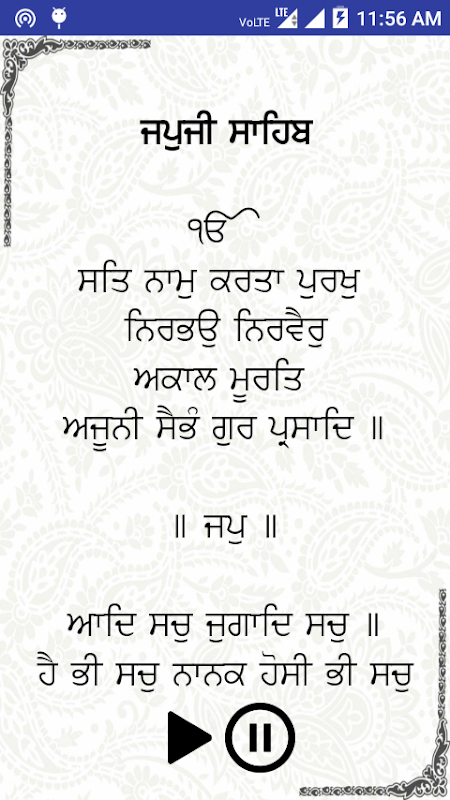 VoLTE LTE 11:56 AM
ਜਪੁਜੀ ਸਾਹਿਬ
ੴ
ਸਤਿ ਨਾਮੁ ਕਰਤਾ ਪੁਰਖੁ
ਨਿਰਭਉ ਨਿਰਵੈਰੁ
ਅਕਾਲ ਮੂਰਤਿ
ਅਜੂਨੀ ਸੈਭੰ ਗੁਰ ਪ੍ਰਸਾਦਿ ॥
॥ ਜਪੁ ॥
ਆਦਿ ਸਚੁ ਜੁਗਾਦਿ ਸਚੁ ॥
ਹੈ ਭੀ ਸਚੁ ਨਾਨਕ ਹੋਸੀ ਭੀ ਸਚੁ